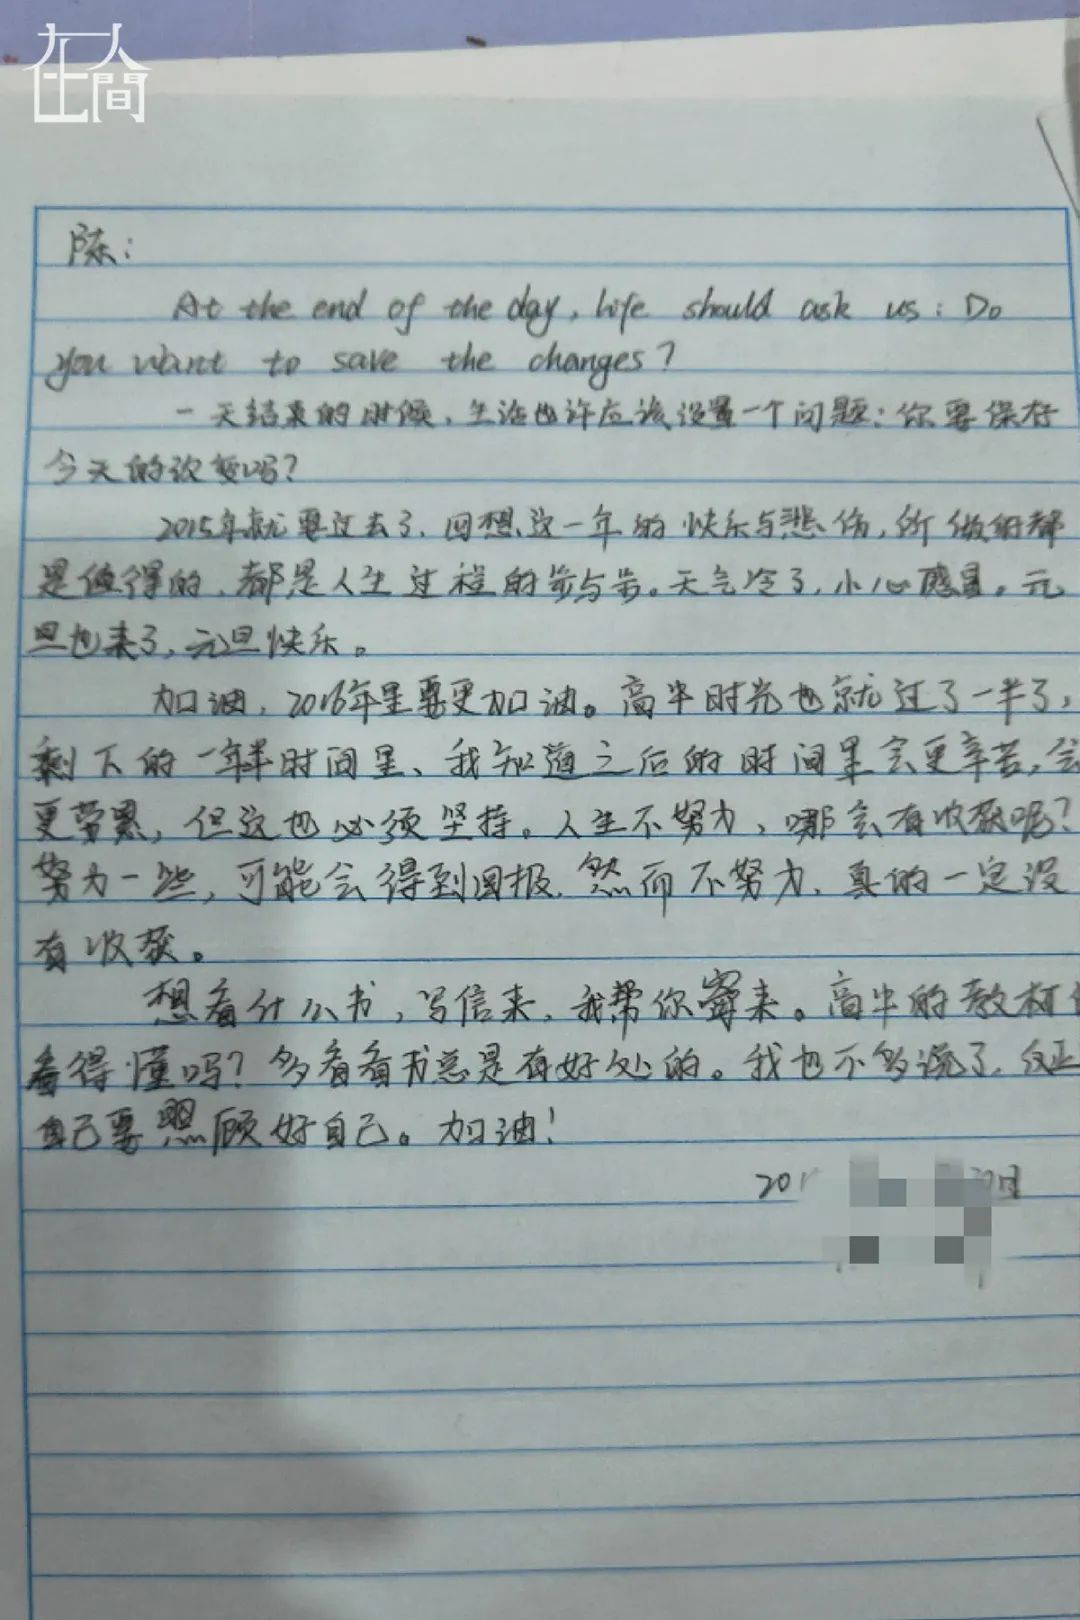 在人間
陈：
At the end of the day, life should ask us: Do
you want to save the changes?
一天结束的时候，生活也许应该设置一个问题：你要保存
今天的改变吗？
2015年就要过去了，回想这一年的快乐与悲伤，所做的都
是值得的，都是人生过程的步与步。天气冷了，小心感冒。元
旦也来了，元旦快乐。
加油，2016年里要更加油。高中时光也就过了一半了，
剩下的一年半时间里、我知道之后的时间里会更辛苦，会
更劳累，但这也必须坚持。人生不努力，哪会有收获呢？
努力一些，可能会得到回报，然而不努力，真的一定没
有收获。
想看什么书，写信来，我帮你寄来。高中的教材
看得懂吗？多看看书总是有好处的。我也不多说了，反正
自己要照顾好自己。加油！
201
日